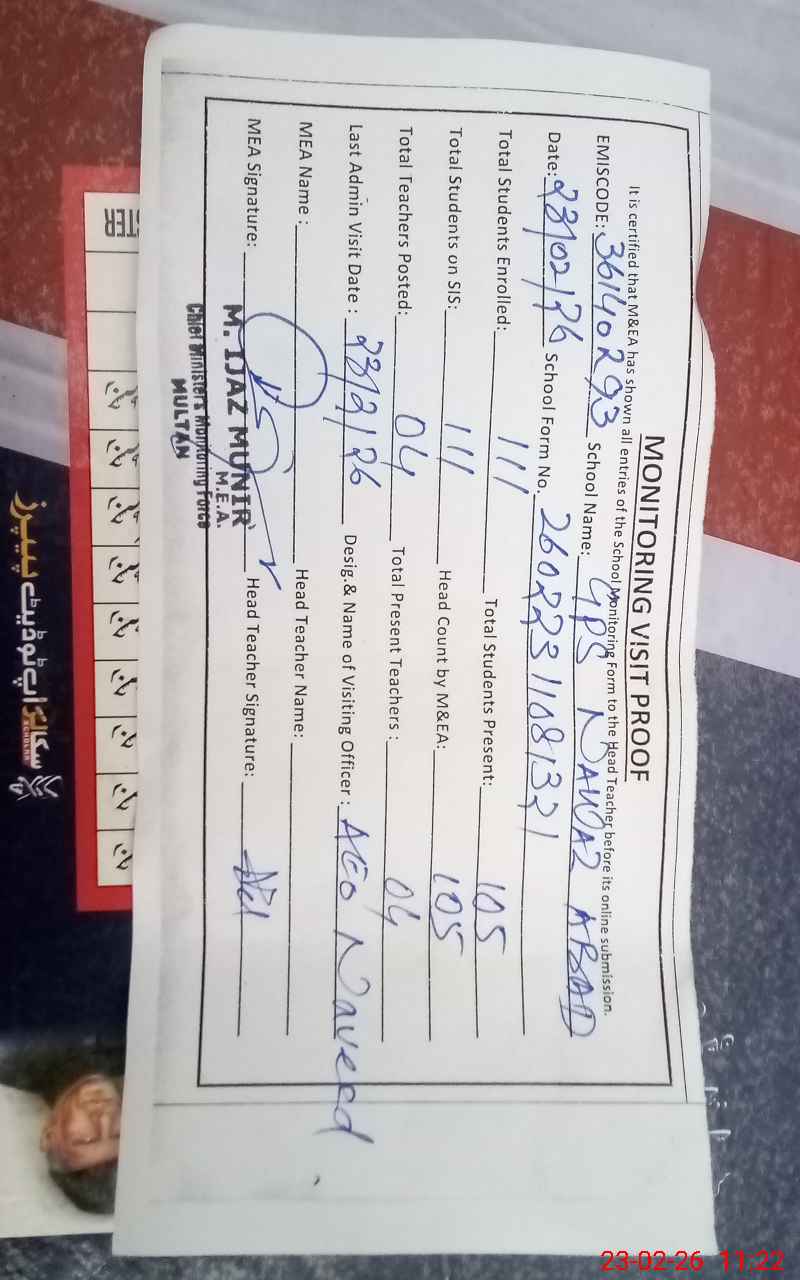 MONITORING VISIT PROOF
It is certified that M&EA has shown all entries of the School Monitoring Form to the Head Teacher before its online submission.
EMISCODE: 36140293 School Name: GPS NAWAZ ABAD
Date: 23/02/26 School Form No. 26022311081321
Total Students Enrolled: 111 Total Students Present: 105
Total Students on SIS: 111 Head Count by M&EA: 105
Total Teachers Posted: 04 Total Present Teachers : 04
Last Admin Visit Date : 23/2/26 Desig.& Name of Visiting Officer : AEO Naveed
MEA Name : Head Teacher Name:
MEA Signature: Head Teacher Signature:
M. IJAZ MUNIR
M.E.A.
Chief Ministers Monitoring Force
MULTAN
سکالر اپ ٹو ڈیٹ پیپرز
SCHOLAR
23-02-26 11:22